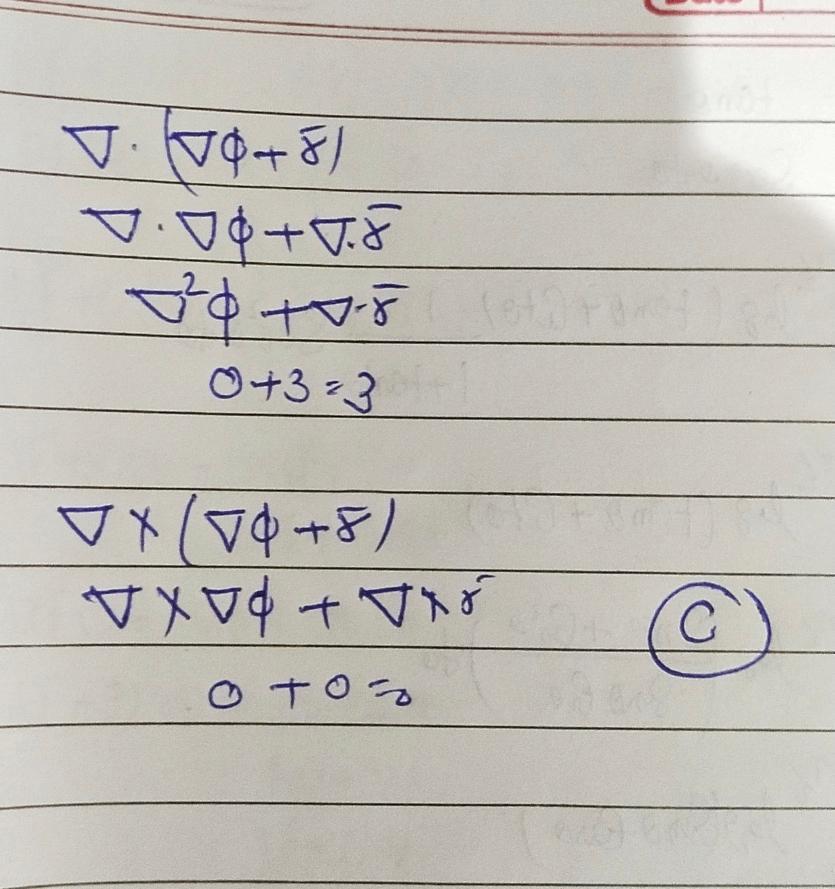 ∇·(∇ϕ+r̄)
∇·∇ϕ+∇·r̄
∇²ϕ+∇·r̄
0+3=3
∇×(∇ϕ+r̄)
∇×∇ϕ+∇×r̄
0+0=0
C